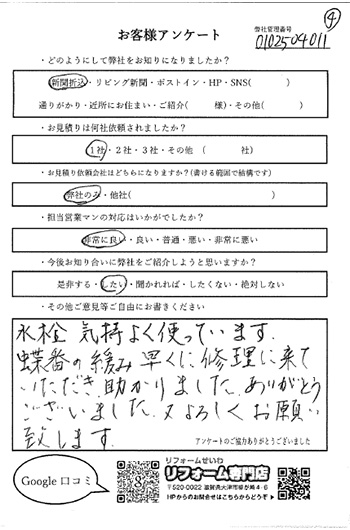 ④
お客様アンケート
弊社管理番号
0102504011
・どのようにして弊社をお知りになりましたか？
新聞折込・リビング新聞・ポストイン・HP・SNS(　　　)
通りがかり・近所にお住まい・ご紹介(　　　様)・その他(　　　)
・お見積りは何社依頼されましたか？
1社・2社・3社・その他　(　　　社)
・お見積り依頼会社はどちらになりますか？(書ける範囲で結構です)
弊社のみ・他社(　　　)
・担当営業マンの対応はいかがでしたか？
非常に良い・良い・普通・悪い・非常に悪い
・今後お知り合いに弊社をご紹介しようと思いますか？
是非する・したい・聞かれれば・したくない・絶対しない
・その他ご意見等ご自由にお書きください
水栓 気持よく使っています.
蝶番の緩み 早くに修理に来て
いただき 助かりました. ありがとう
ございました. 又よろしくお願い
致します.
アンケートのご協力ありがとうございました
Google 口コミ
リフォームせいわ
リフォーム専門店
〒520-0022 滋賀県大津市柳が崎4-6
HPからのお問合せはこちらからどうぞ▶